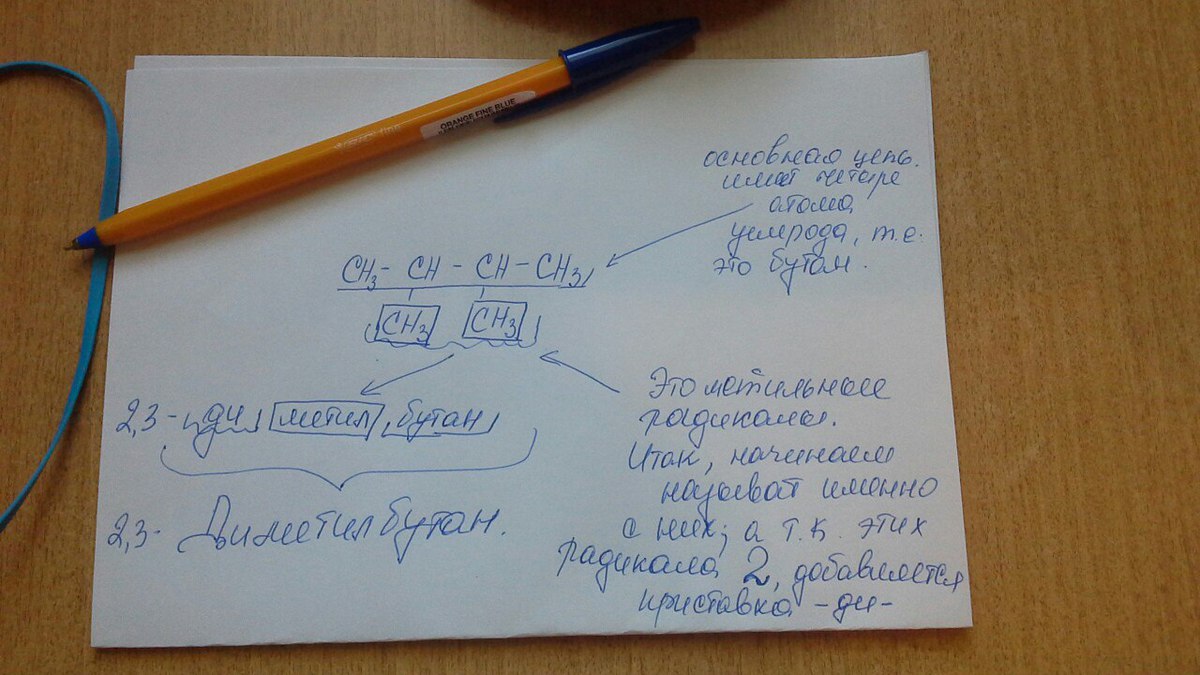 ORANGE FINE BLUE
основная цепь.
имеет четыре
атома
углерода, т.е.
это бутан.
CH₃ - CH - CH - CH₃,
CH₃ CH₃
Это метильные
радикалы.
Итак, начинаем
называт именно
с них; а т.к. этих
радикала 2, добавляется
приставка -ди-
2,3- ди метил, бутан
2,3- Диметилбутан.